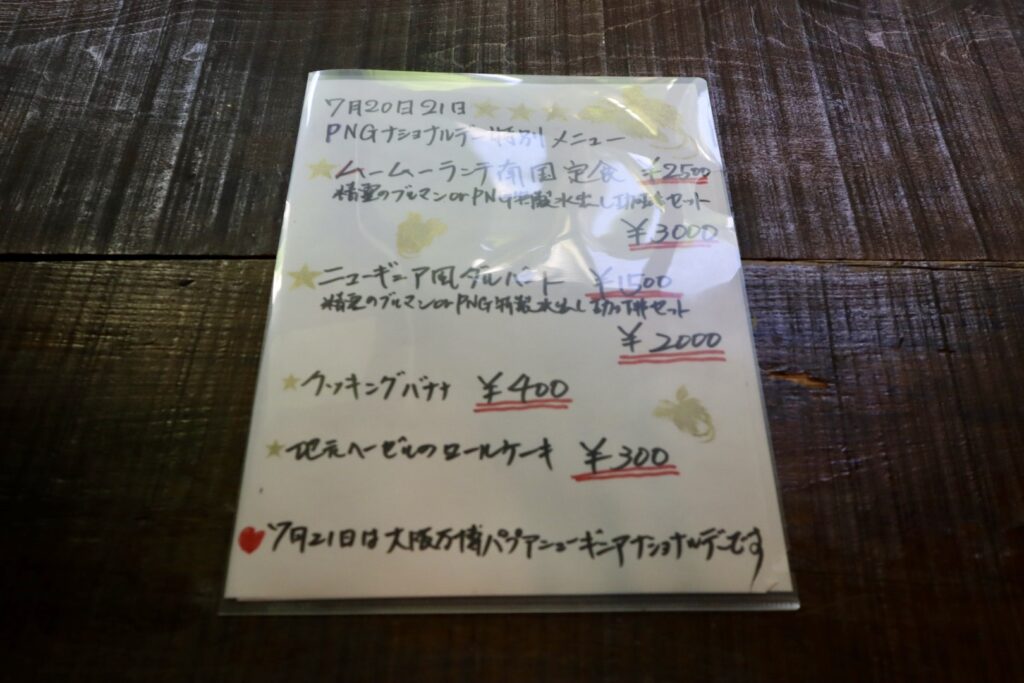 7月20日21日
PNGナショナルデー特別メニュー
ムームーランチ南国定食 ¥2500
のブルマンorPNG特製水出し珈琲セット
¥3000
ニューギニア風ダルバート ¥1500
のブルマンorPNG特製水出し珈琲セット
¥2000
クッキングバナナ ¥400
地元ヘーゼルのロールケーキ ¥300
7月21日は大阪万博パプアニューギニアナショナルデーです